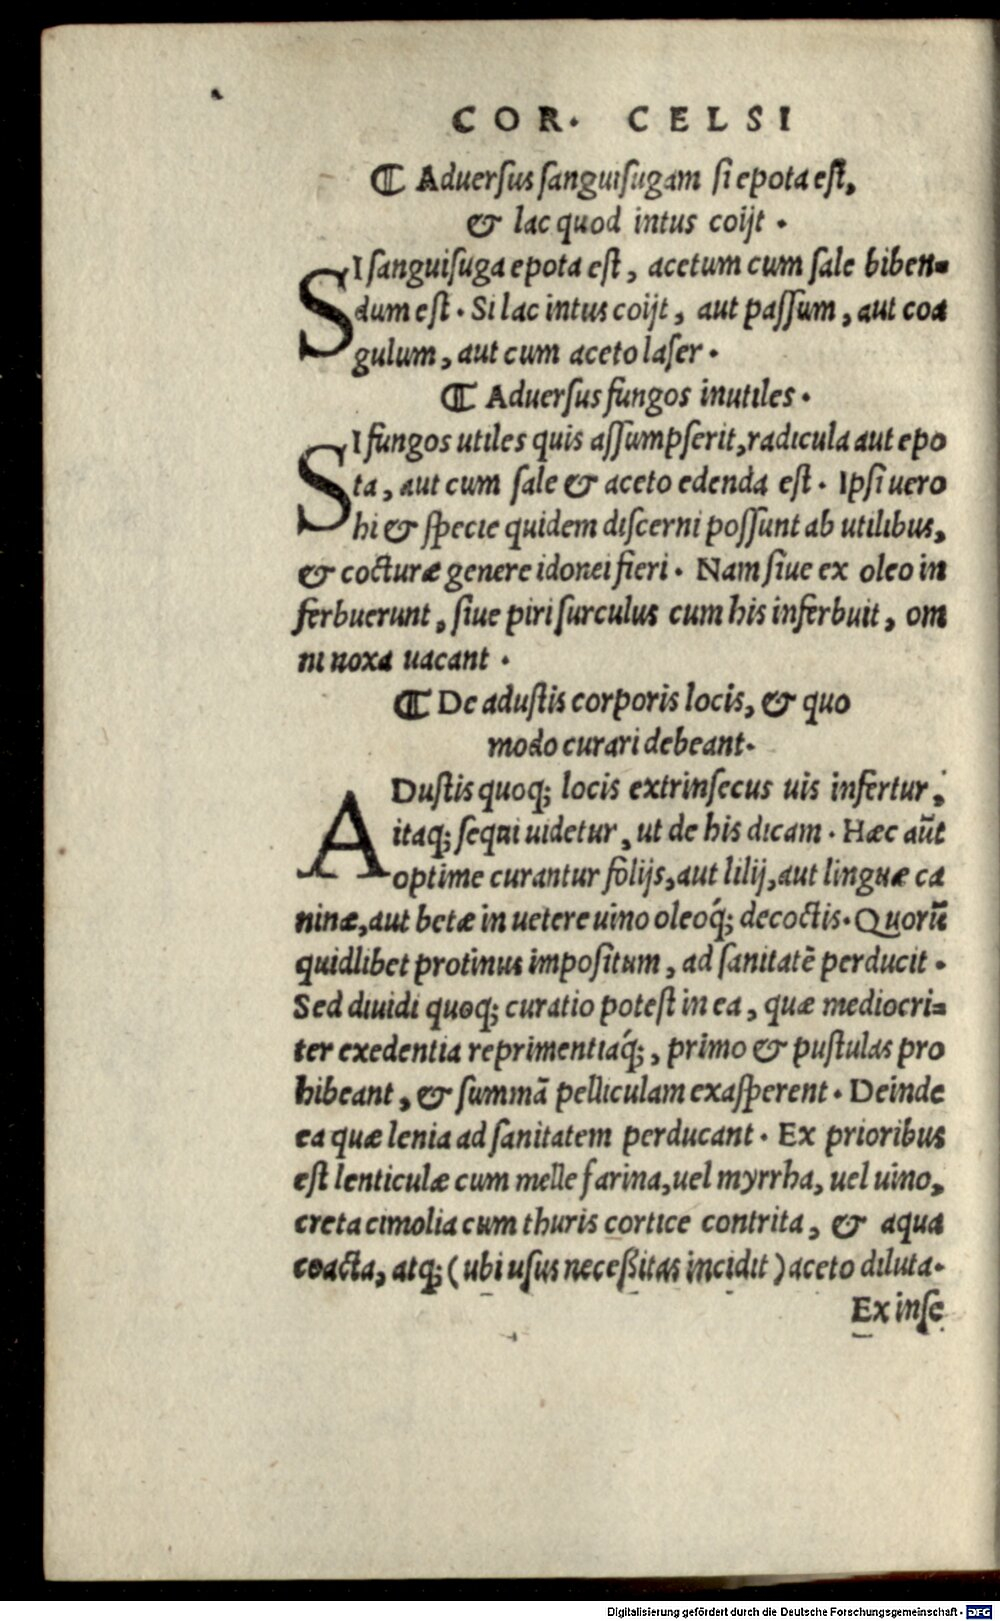 COR. CELSI
¶ Aduerſus ſanguiſugam ſi epota eſt,
& lac quod intus coijt.
SI ſanguiſuga epota eſt, acetum cum ſale biben-
dum eſt. Si lac intus coijt, aut paſſum, aut coa
gulum, aut cum aceto laſer.
¶ Aduerſus fungos inutiles.
SI fungos utiles quis aſſumpſerit, radicula aut epo
ta, aut cum ſale & aceto edenda eſt. Ipſi uero
hi & ſpecie quidem diſcerni poſſunt ab utilibus,
& cocturæ genere idonei fieri. Nam ſiue ex oleo in
ferbuerunt, ſiue piri ſurculus cum his inferbuit, om
ni noxa uacant.
¶ De aduſtis corporis locis, & quo
modo curari debeant.
ADuſtis quoq; locis extrinſecus uis infertur,
itaq; ſequi uidetur, ut de his dicam. Hæc aũt
optime curantur folijs, aut lilij, aut linguæ ca
ninæ, aut betæ in uetere uino oleoq́; decoctis. Quorũ
quidlibet protinus impoſitum, ad ſanitatẽ perducit.
Sed diuidi quoq; curatio poteſt in ea, quæ mediocri-
ter exedentia reprimentiaq́;, primo & puſtulas pro
hibeant, & ſummã pelliculam exaſperent. Deinde
ea quæ lenia ad ſanitatem perducant. Ex prioribus
eſt lenticulæ cum melle farina, uel myrrha, uel uino,
creta cimolia cum thuris cortice contrita, & aqua
coacta, atq; (ubi uſus neceßitas incidit) aceto diluta.
Ex inſe
Digitalisierung gefördert durch die Deutsche Forschungsgemeinschaft - DFG